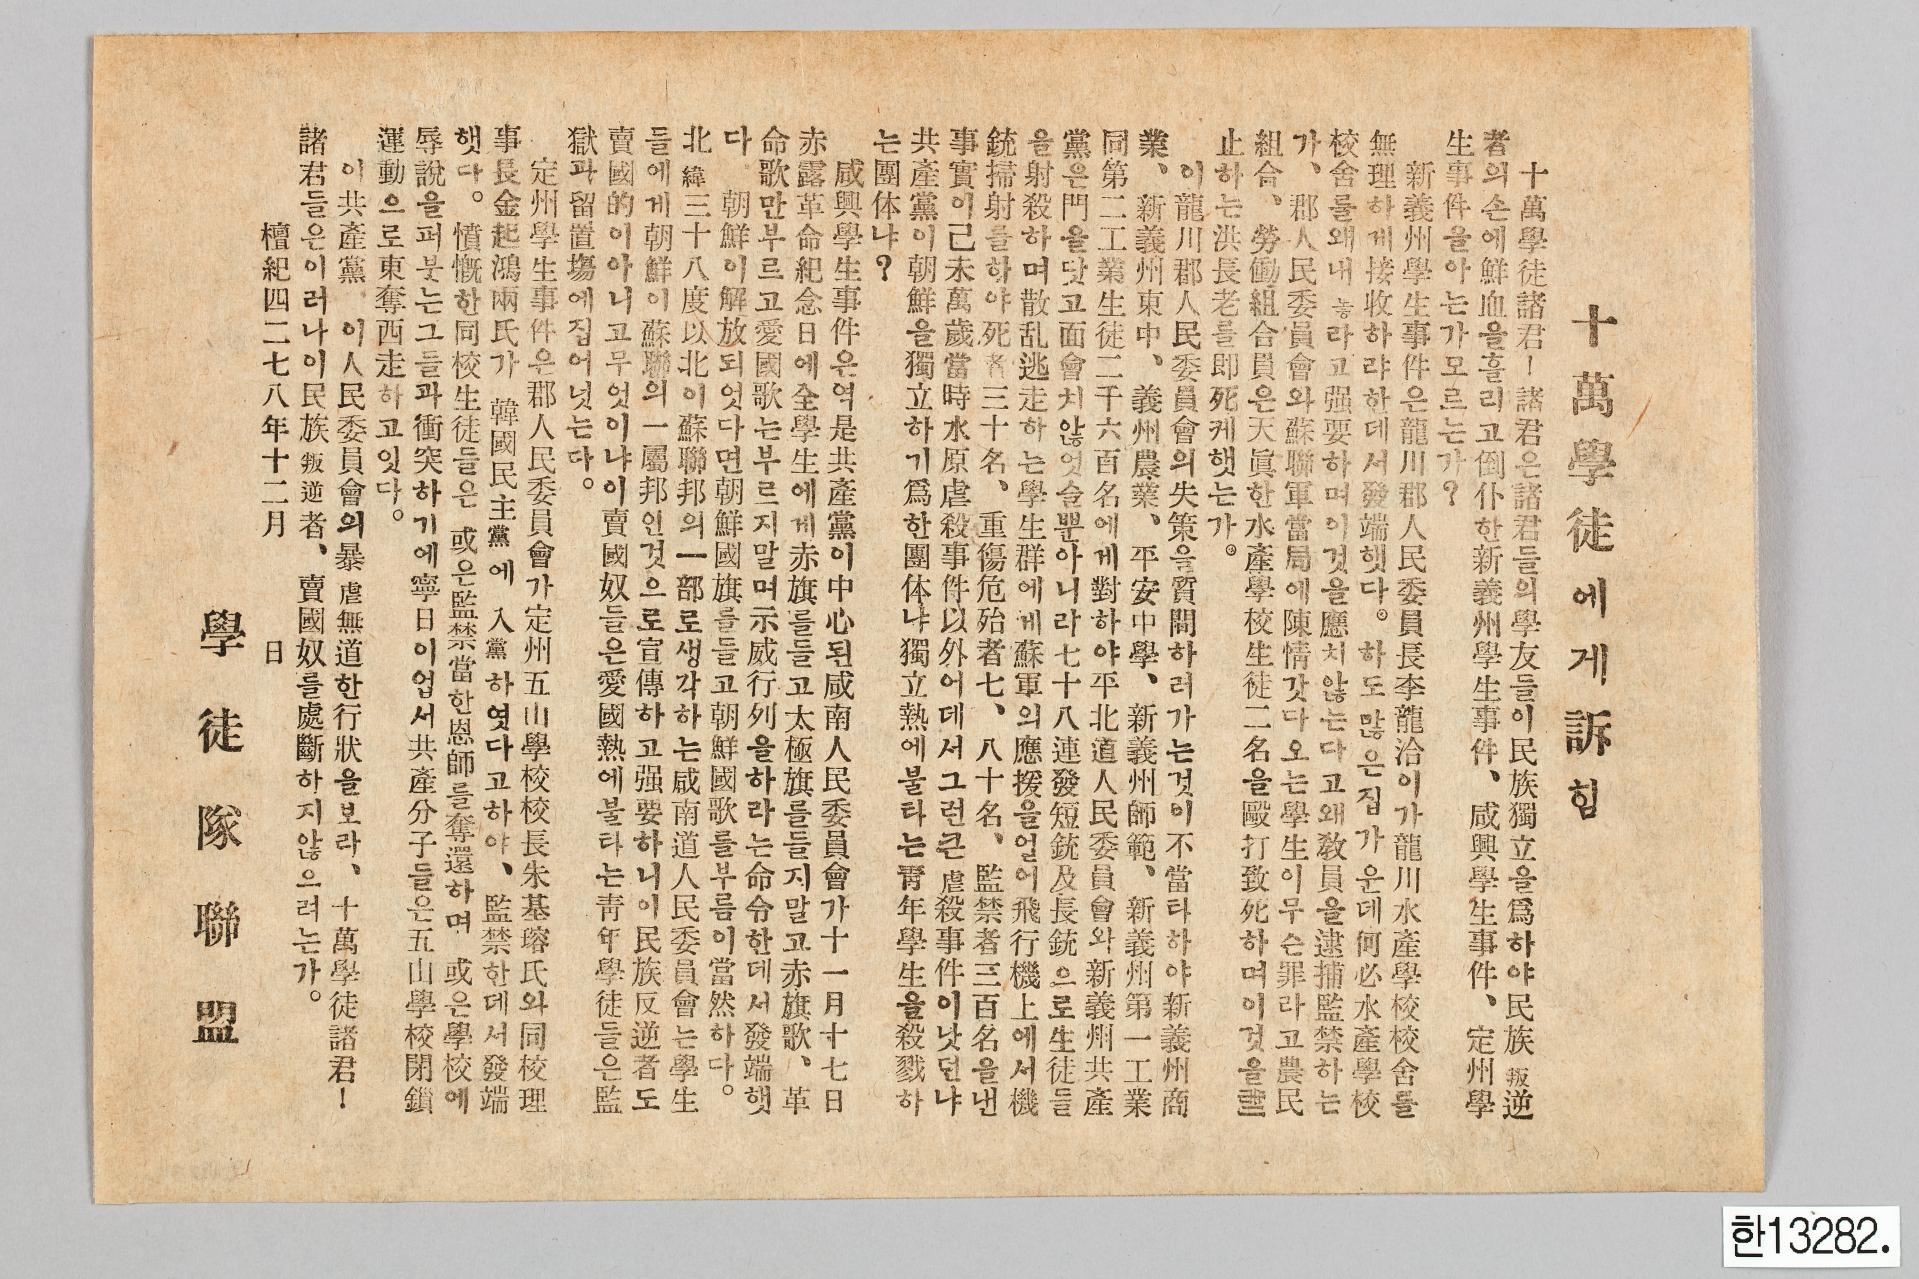 十萬學徒에게訴힘
十萬學徒諸君！諸君은諸君들의學友들이民族獨立을爲하야民族叛逆
者의손에鮮血을흘리고倒仆한新義州學生事件、咸興學生事件、定州學
生事件을아는가모르는가?
新義州學生事件은龍川郡人民委員長李龍洽이가龍川水產學校校舍를
無理하게接收하랴한데서發端햇다。하도많은집가운데何必水產學校
校舍를왜내놓라고强要하며이것을應치않는다고왜敎員을逮捕監禁하는
가、郡人民委員會와蘇聯軍當局에陳情갓다오는學生이무슨罪라고農民
組合、勞働組合員은天眞한水產學校生徒二名을毆打致死하며이것을
止하는洪長老를即死케햇는가。
이龍川郡人民委員會의失策을質問하러가는것이不當타하야新義州商
業、新義州東中、義州農業、平安中學、新義州師範、新義州第一工業
同第二工業生徒二千六百名에게對하야平北道人民委員會와新義州共產
黨은門을닷고面會치않엇슬뿐아니라七十八連發短銃及長銃으로生徒들
을射殺하며散乱逃走하는學生群에게蘇軍의應援을얻어飛行機上에서機
銃掃射를하야死者三十名、重傷危殆者七、八十名、監禁者三百名을낸
事實이己未萬歲當時水原虐殺事件以外어데서그런큰虐殺事件이낫던냐
共產黨이朝鮮을獨立하기爲한團体냐獨立熱에불타는靑年學生을殺戮하
는團体냐?
咸興學生事件은역是共產黨이中心된咸南人民委員會가十一月十七日
赤露革命紀念日에全學生에게赤旗를들고太極旗를들지말고赤旗歌、革
命歌만부르고愛國歌는부르지말며示威行列을하라는命令한데서發端햇
다 朝鮮이解放되엇다면朝鮮國旗를들고朝鮮國歌를부름이當然하다。
北緯三十八度以北이蘇聯邦의一部로생각하는咸南道人民委員會는學生
들에게朝鮮이蘇聯의一屬邦인것으로宣傳하고强要하니이民族反逆者도
賣國的이아니고무엇이냐이賣國奴들은愛國熱에불타는靑年學徒들은監
獄과留置塲에집어넛는다。
定州學生事件은郡人民委員會가定州五山學校校長朱基瑢氏와同校理
事長金起鴻兩氏가 韓國民主黨에入黨하엿다고하야、監禁한데서發端
햇다。憤慨한同校生徒들은 或은監禁當한恩師를奪還하며 或은學校에
辱說을퍼붓는그들과衝突하기에寧日이업서共產分子들은五山學校閉鎖
運動으로東奪西走하고잇다。
이共產黨 이人民委員會의暴虐無道한行狀을보라、十萬學徒諸君！
諸君들은이러나이民族叛逆者、賣國奴를處斷하지않으려는가。
檀紀四二七八年十二月 日
學徒隊聯盟
한13282.